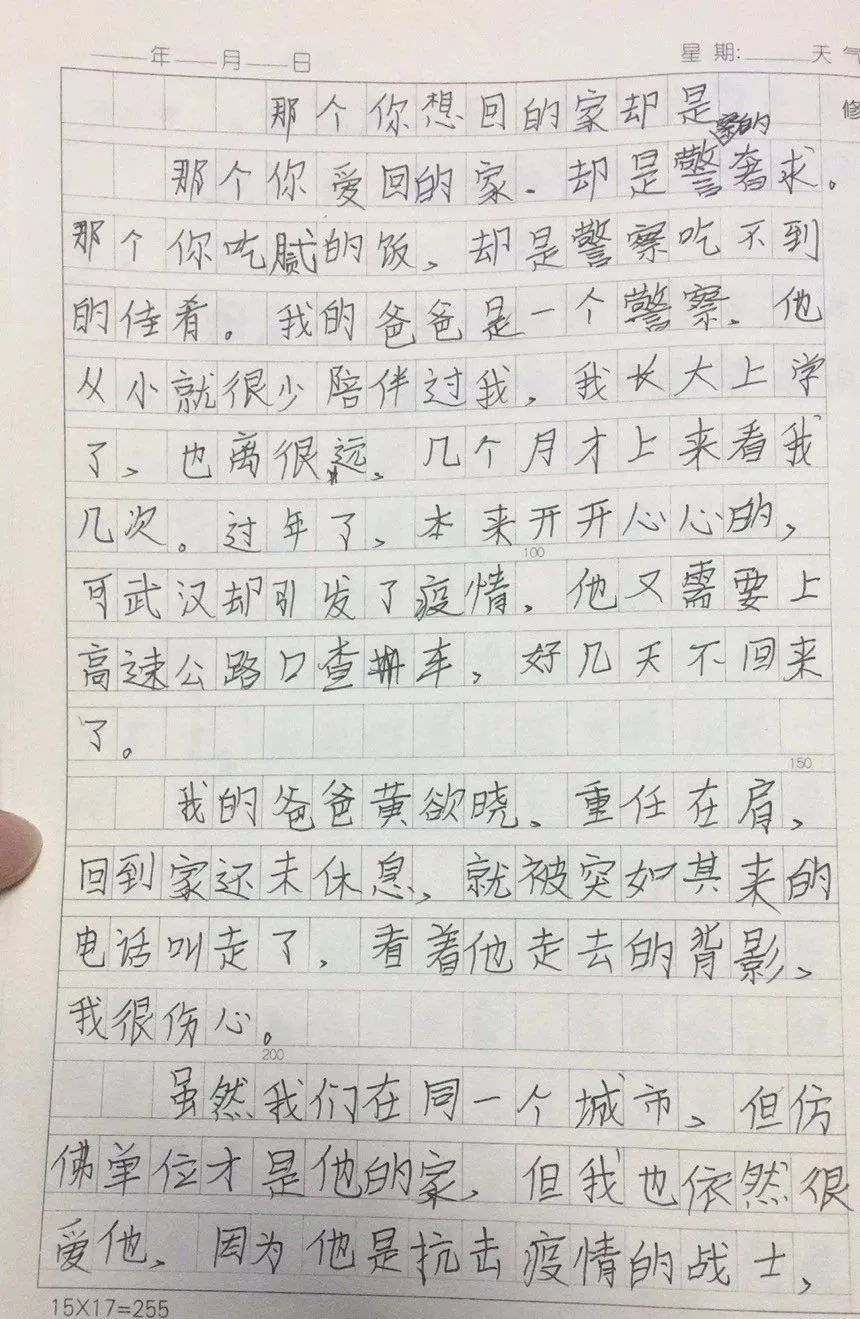 ____年__月__日 星期:____天气
那个你想回的家却是 修
察的
那个你爱回的家、却是警奢求。
那个你吃腻的饭、却是警察吃不到
的佳肴。我的爸爸是一个警察、他
从小就很少陪伴过我，我长大上学
了、也离很远、几个月才上来看我
几次。过年了、本来开开心心的，
100
可武汉却引发了疫情，他又需要上
高速公路口查车，好几天不回来
了。
150
我的爸爸黄欲晓、重任在肩，
回到家还未休息，就被突如其来的
电话叫走了，看着他走去的背影、
我很伤心。
200
虽然我们在同一个城市、但仿
佛单位才是他的家，但我也依然很
爱他、因为他是抗击疫情的战士，
15X17=255